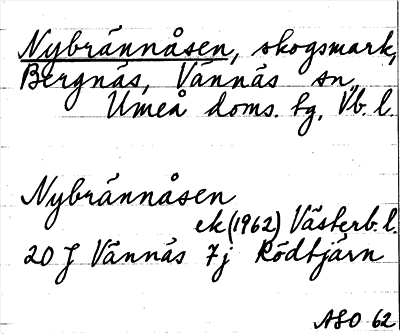 Nybrännåsen, skogsmark,
Bergnäs, Vännäs sn,
Umeå doms. fg, Vb. l.
Nybrännåsen
ek (1962) Västerb. l.
20 J Vännäs 7j Rödtjärn
ASO 62